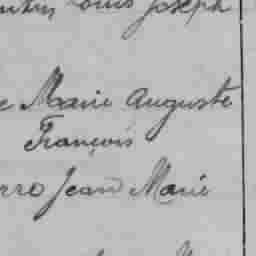 Louis Joseph
Marie Auguste
François
Jean Marie